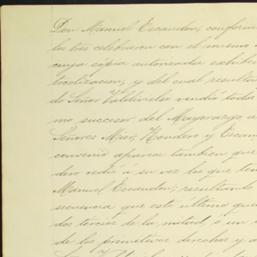 Don Manuel Escandon, conform
los tres celebraron con el mismo
cuya copia autorizada exhiben
tocolizacion; y del cual result
do Señor Valdivielso vendió todos
mo sucesor del Mayorazgo a
Señores Mier, Hondero y Escan
convenio aparece tambien que
den cedió a su vez lo que ten
Manuel Escandon; resultando
secuencia que este último que
dos tercios de la mitad, ó un
de los primitivos derechos y a